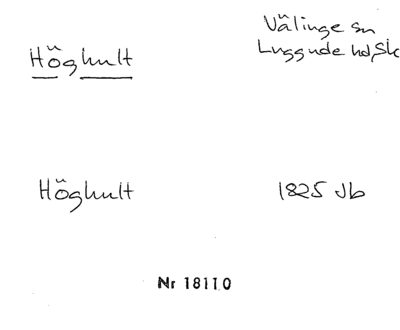 Höghult
Välinge sn
Luggude hd, Sk
Höghult
1825 Jb
Nr 18110